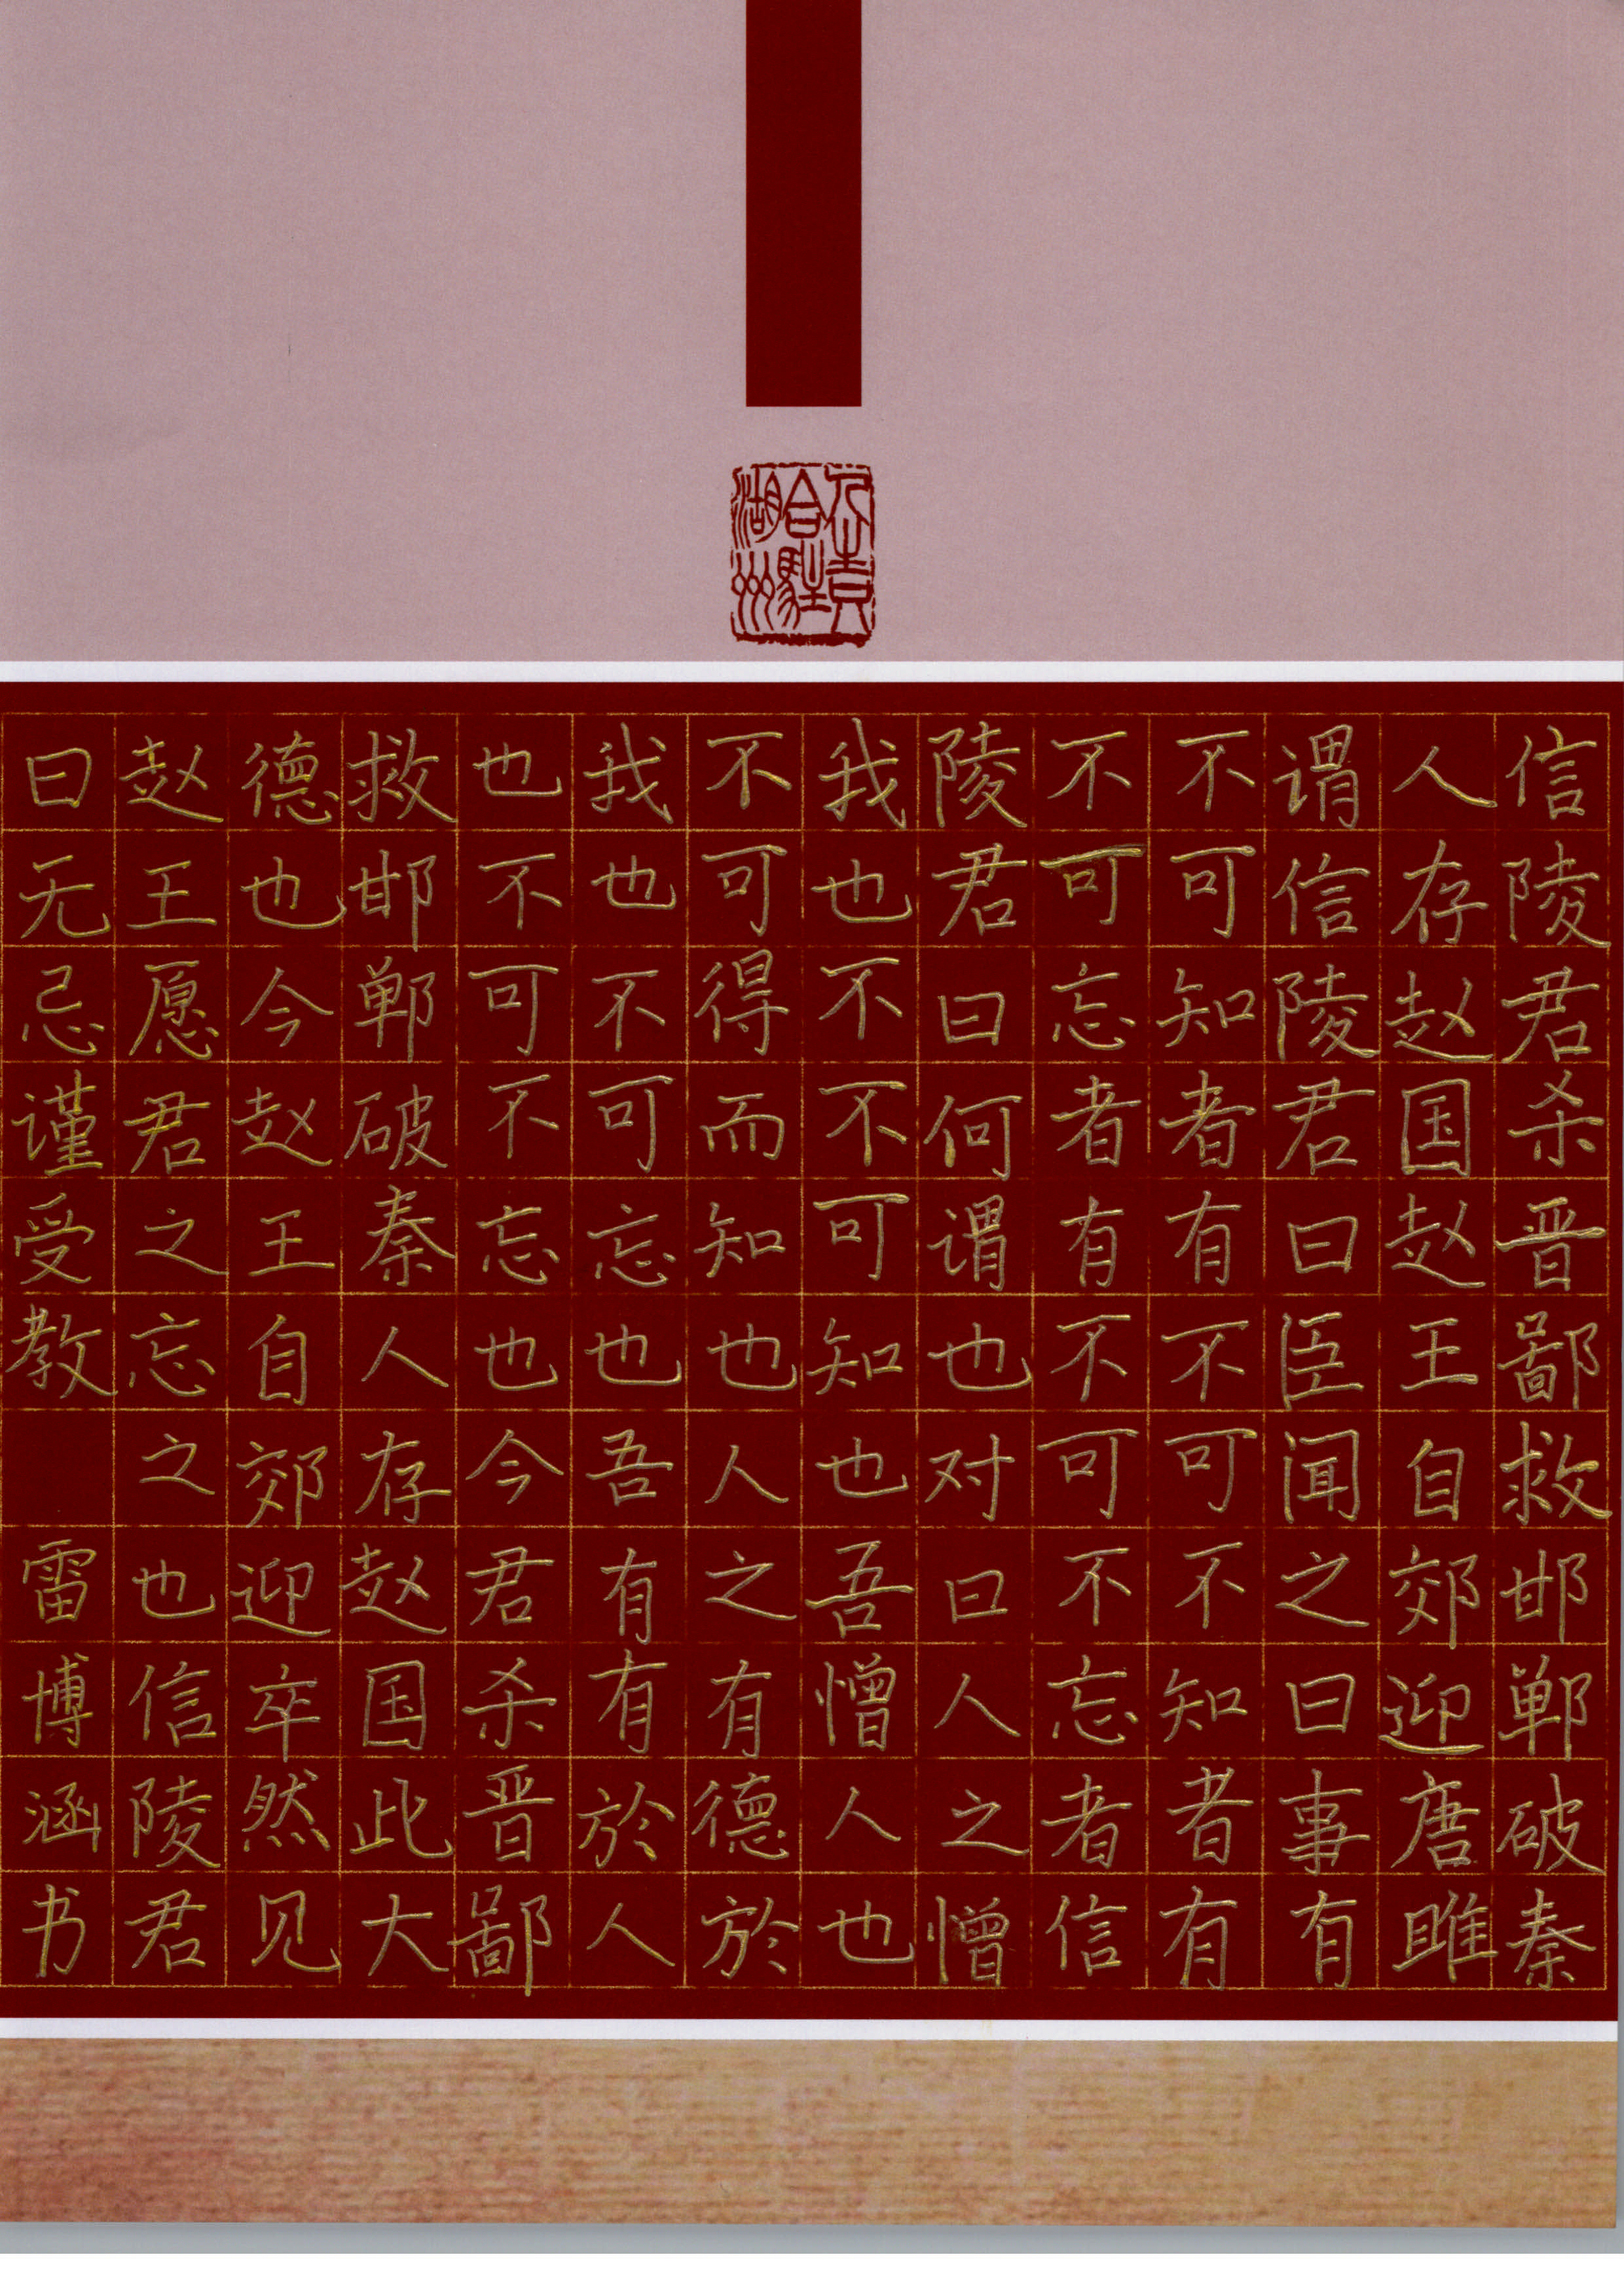 湖州
信陵君杀晋鄙救邯郸破秦
人存赵国赵王自郊迎唐雎
谓信陵君曰臣闻之曰事有
不可知者有不可不知者有
不可忘者有不可不忘者信
陵君曰何谓也对曰人之憎
我也不不可知也吾憎人也
不可得而知也人之有德於
我也不可忘也吾有有於人
也不可不忘也今君杀晋鄙
救邯郸破秦人存赵国此大
德也今赵王自郊迎卒然见
赵王愿君之忘之也信陵君
曰无忌谨受教 雷博涵书